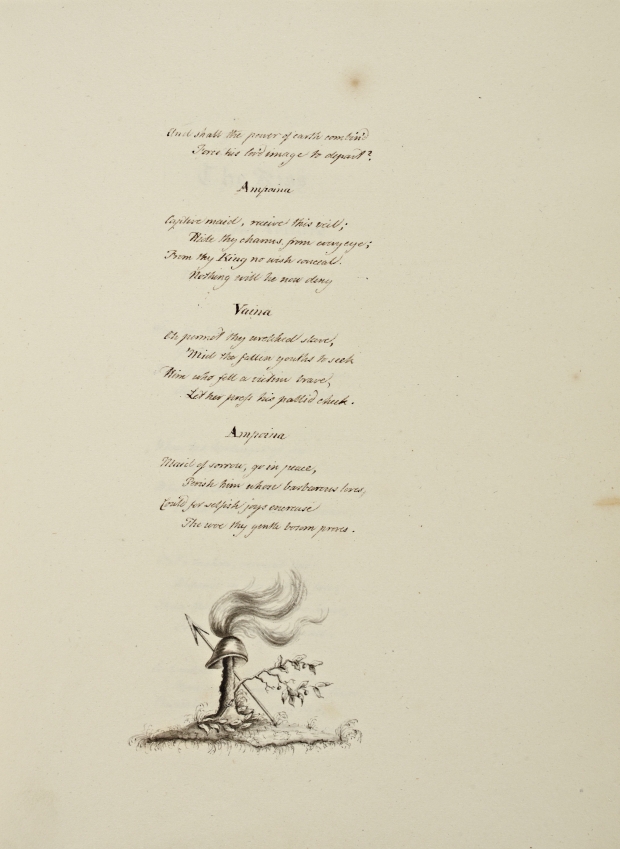 And shall the power of earth combin'd
Force his lov'd image to depart?
Ampoina
Captive maid, receive this veil;
Hide thy charms from every eye;
From thy King no wish conceal.
Nothing will he now deny
Vaina
Oh permit thy wretched slave,
'Mid the fallen youths to seek
Him who fell a victim brave,
Let her press his pallid cheek.
Ampoina
Maid of sorrow, go in peace,
Perish him whose barbarous loves,
Could for selfish joys encrease
The woe thy gentle bosom proves.